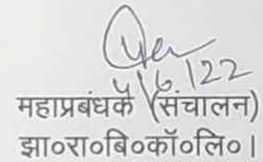 4/6/22
महाप्रबंधक (संचालन)
झा०रा०बि०कॉ०लि०।